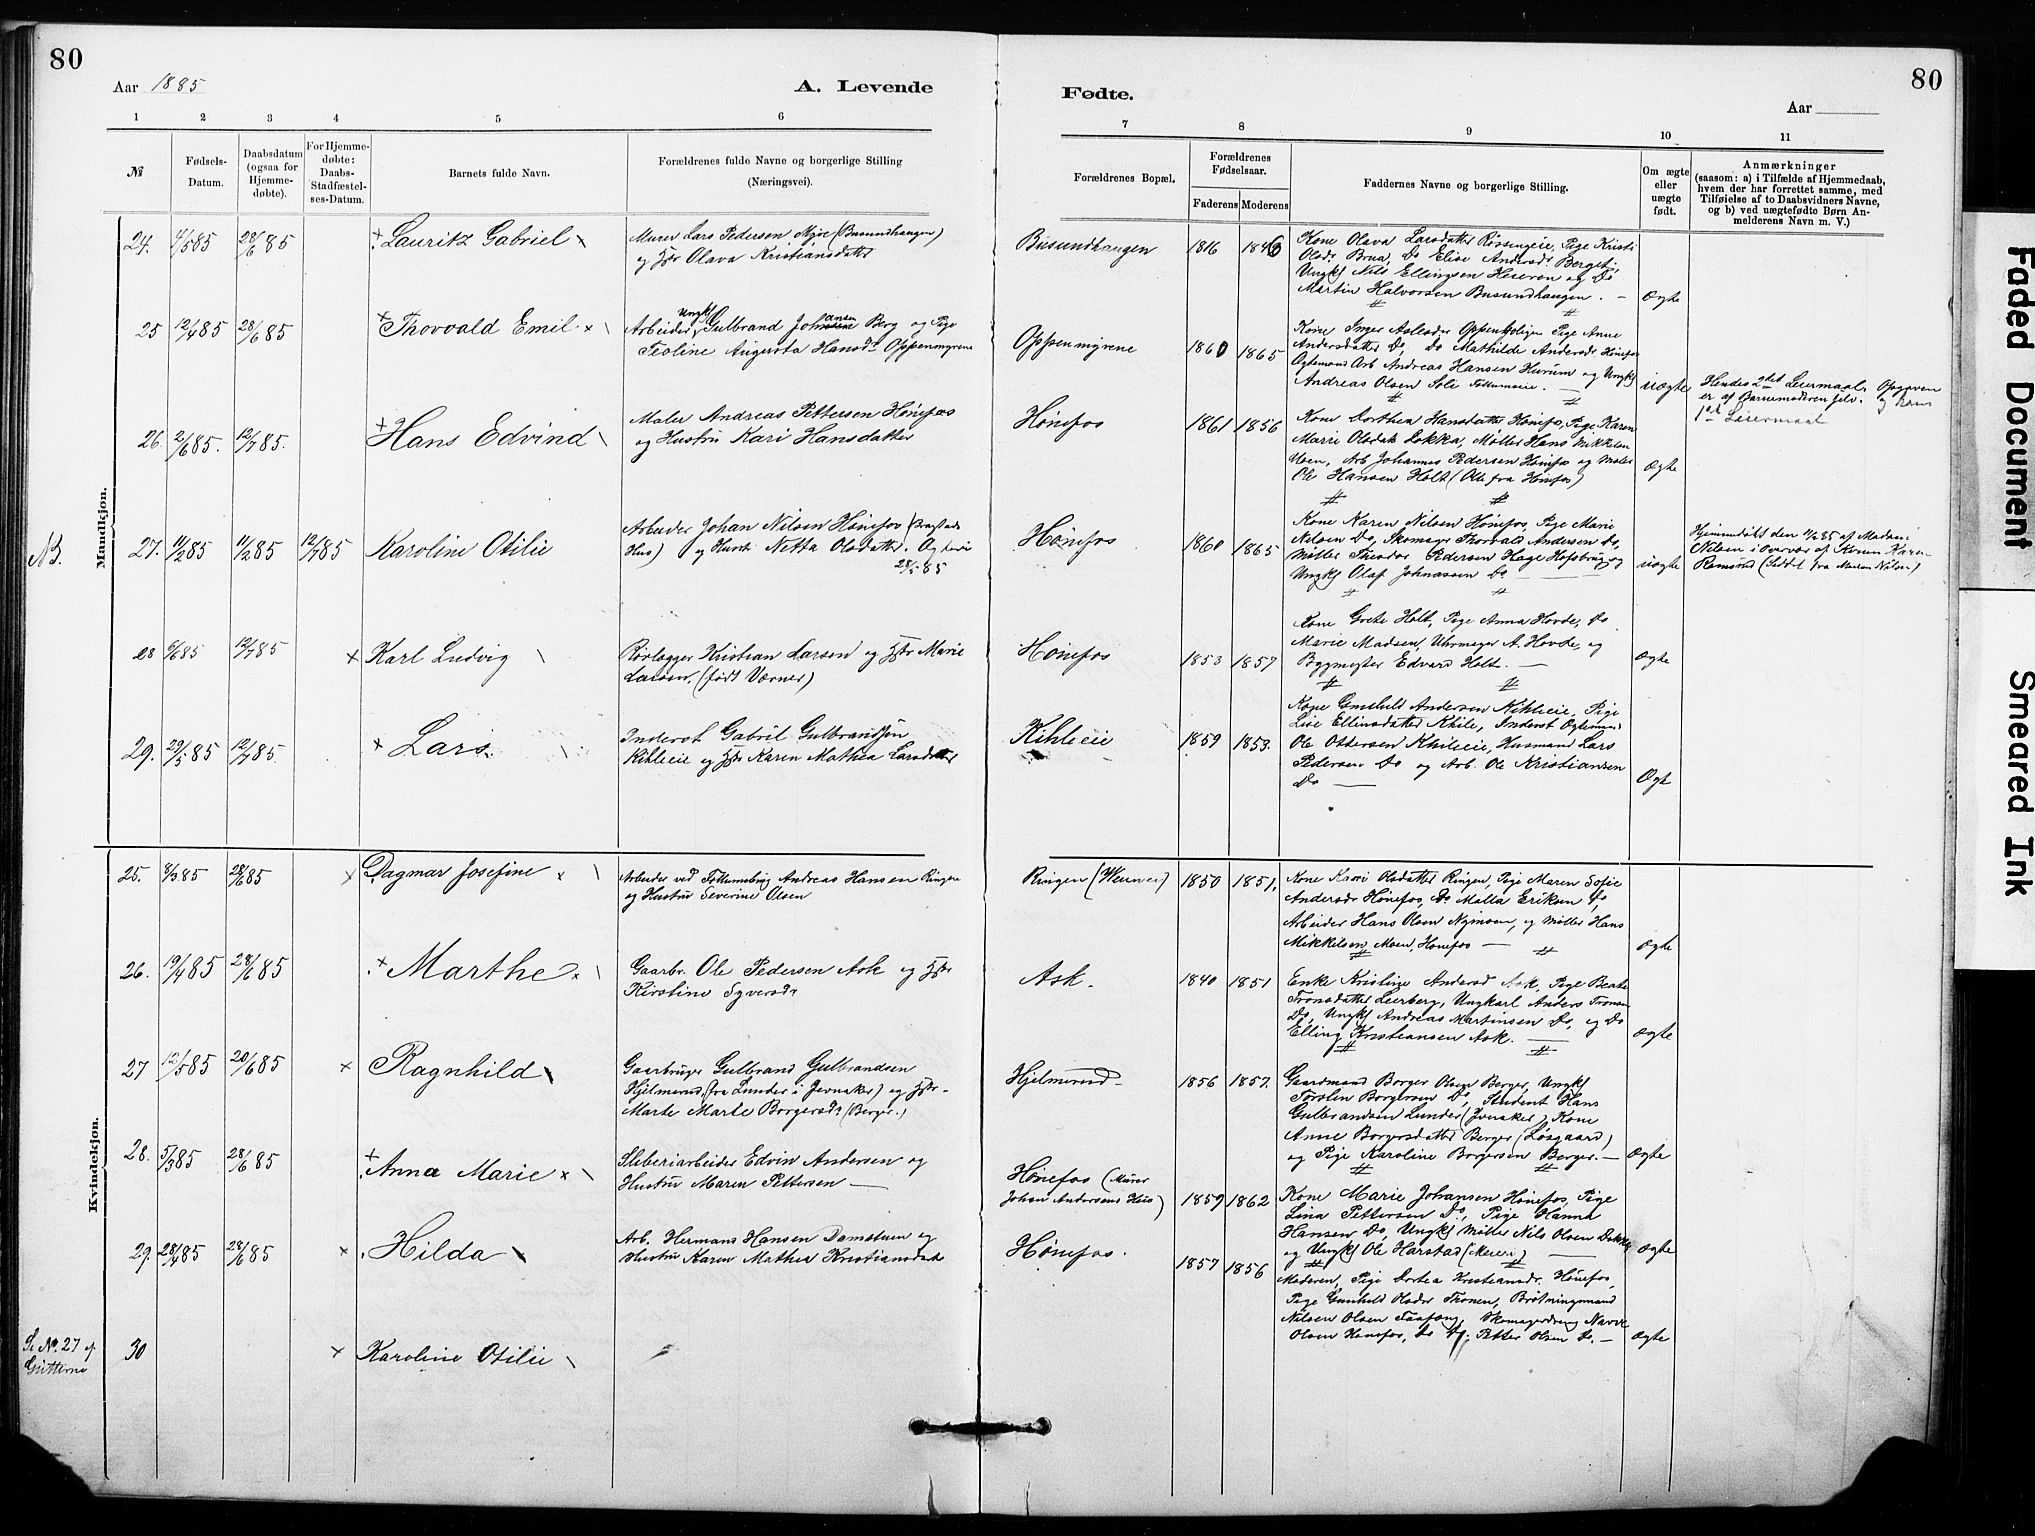 80
80
Aar 1885
A. Levende
Fødte.
Aar
1 2 3 4 5 6 7 8 9 10 11
№
Fødsels-
Datum.
Daabsdatum
(ogsaa for
Hjemme-
døbte).
For Hjemme-
døbte:
Daabs-
Stadfæstel-
ses-Datum.
Barnets fulde Navn.
Forældrenes fulde Navne og borgerlige Stilling
(Næringsvei).
Forældrenes Bopæl.
Forældrenes
Fødselsaar.
Faderens Moderens
Faddernes Navne og borgerlige Stilling.
Om ægte
eller
uægte
født.
Anmærkninger
(saasom: a) i Tilfælde af Hjemmedaab,
hvem der har forrettet samme, med
Tilføielse af to Daabsvidners Navne,
og b) ved uægtefødte Børn An-
melderens Navn m. V.)
Mandkjøn.
24. 4/5 85 28/6 85 Lauritz Gabriel
Murer Lars Pedersen (Busundhaugen)
og Hstr Olava Kristiansdatter
Busundhaugen 1816 1846
Kone Olava Larsdatter Røssingeie, Pige Kristi
Olsdr Brua, Do Elise Andersdr Berget,
Ungkf Nils Ellingsen Heieren og Do
Martin Halvorsen Busundhaugen. Ægte
25 12/4 85 28/6 85 Thorvald Emil
Ungkf
Arbeider Gulbrand Johansen Berg og Pige
Teoline Augusta Hansdr Oppenmyrene
Oppenmyrene 1860 1865
Kone Inger Oppenholien Pige Anne
Andersdatter Do, Do Mathilde Andersdr Hønefos
Ægtemand Arb Andreas Hansen Hurum og Ungkf
Andreas Olsen Soli uægte
Hendes 2det Leiermaal. Opgaven
er af Barnemoderen selv. og hans
1ste Leiermaal
26. 2/6 85. 12/7 85. Hans Edvind
Maler Andreas Pettersen Hønefos
og Hustru Kari Hansdatter
Hønefos 1861 1856
Kone Dorthea Hansdatter Hønefos, Pige Karen
Marie Olsdatr Lokka, Møller Hans Mikkelsen
Moen, Arb Johannes Pedersen Hønefos og Møller
Ole Hansen Holt (Alle fra Hønefos) Ægte
NB.
27. 11/2 85 11/2 85 12/7 85 Karoline Otilie
Arbeider Johan Nilsen Hønefos (Bragstads
Hus) og Hustr Netta Olsdatter. Ægtevi
28/5 85
Hønefos 1860 1865
Kone Karen Nilsen Hønefos, Pige Marie
Nilsen Do, Skomager Thorvald Andersen Do,
Møller Theodor Pedersen Hage Hofsbrug og
Ungkf Olaf Johnassen Do uægte
Hjemmedøbt den 11/2 85 af Madam
Nilsen i Overvær af Konen Karen
Ramsrud (Seddel fra Madam Nilsen)
28 6/6 85 12/7 85 Karl Ludvig
Rørlægger Kristian Larsen og Hstr Marie
Larsen, (født Værner)
Hønefos 1853 1857
Kone Grete Holt, Pige Anna Hovde, Do
Marie Madsen, Uhrmager A. Hovde, og
Bygmester Edvard Holt. Ægte
29. 29/5 85 12/7 85. Lars.
Inderst Gabril Gulbrandsen
Kihleeie og Hstr Karen Mathea Larsdatter
Kihleeie 1859 1853.
Kone Gunhild Andersen Kihleeie, Pige
Lise Ellinsdatter Khile, Inderst Ægtem
Ole Ottersen Khileeie, Husmand Lars
Pedersen Do og Arb. Ole Kristiansen
Do Ægte
Kvindekjøn.
25. 8/3 85 28/6 85 Dagmar Josefine
Arbeider ved Follumsbrug Andreas Hansen Ringen
og Hustru Severine Olsen
Ringen 1850 1851,
Kone Kari Olsdatter Ringen, Pige Maren Sofie
Andersdr Hønefos, Do Malla Eriksen Do,
Arbeider Hans Olsen Nymoen, og Møller Hans
Mikkelsen Moen, Hønefos Ægte
26. 19/4 85 28/6 85 Marthe
Gaardbr. Ole Pedersen Ask og Hstr
Kirstine Syversdr
Ask. 1840 1851
Enke Kristine Andersd Ask, Pige Beate
Tronsdatter Leerberg, Ungkarl Anders Tronsen
Do, Ungkf Andreas Martinsen Do, og Do
Elling Kristiansen Ask. Ægte
27 12/5 85 20/6 85 Ragnhild
Gaardbruger Gulbrand Gulbrandsen
Hjelmerud, (fra Lunder i Jevnaker) og Hstr
Marte Marte Borgersdr (Berger.)
Hjelmerud 1856 1857.
Gaardmand Borger Olsen Berger, Ungkf
Torsten Borgersen Do, Student Hans
Gulbrandsen Lunder (Jevnaker), Kone
Anne Borgersdatter Berger (Løsgaard)
og Pige Karoline Borgersen Berger. Ægte
28. 5/3 85 28/6 85 Anna Marie
Sliberiarbeider Edvin Andersen og
Hustru Maren Pettersen
Hønefos (Murer
Johan Andersens Hus) 1859 1862
Kone Marie Johansen Hønefos, Pige
Lina Pettersen Do, Pige Hanna
Hansen Do, Ungkf Møller Nils Olsen Dokka
og Ungkf Ole Harstad (Meieri) Ægte
29. 28/4 85 28/6 85 Hilda
Arb. Hermans Hansen Damstuen og
Hustru Karen Mathea Kristiansdatr
Hønefos. 1857 1856
Moderen, Pige Dortea Kristiansdr. Hønefos,
Pige Gunhild Olsdr Tronen, Brøtningsmand
Nilsen Olsen Tasfong, Skomagerdreng Narve
Olsen Hønefos, Do Petter Olsen Do. Ægte
Se No. 27 af
Gutterne
30 Karoline Otilie
Faded Document
Smeared Ink